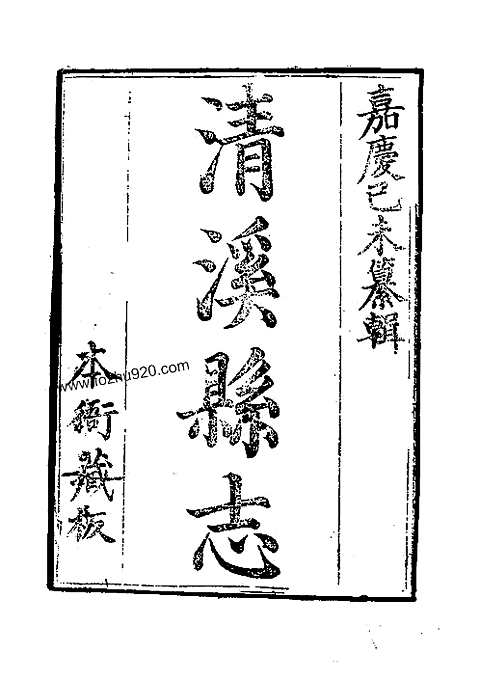 嘉慶己未纂輯
清溪縣志
本衙藏板
www.fozhu920.com